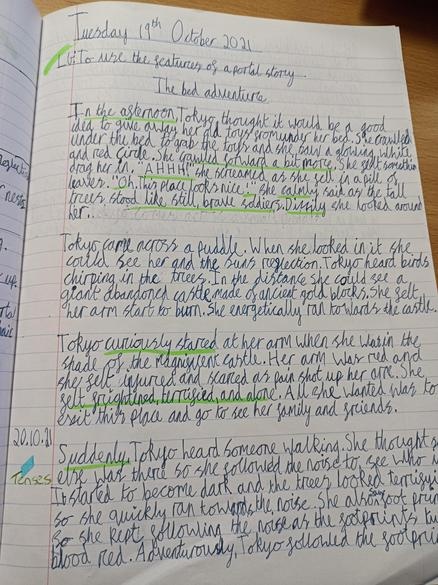 Tuesday 19th October 2021
LI: To use the features of a portal story.
The bed adventure
In the afternoon, Tokyo, thought it would be a good
idea to give away her old toys from under her bed. She crawled
under the bed to grab the toys and she saw a glowing, white
and red circle. She crawled forward a bit more. She felt something
drag her in. "AHHH!" she screamed as she fell in a pile of
leaves. "Oh, this place looks nice!" she calmly said as the tall
trees stood like still, brave soldiers. Dizzily she looked around
her.
Tokyo came across a puddle. When she looked in it she
could see her and the suns reflection. Tokyo heard birds
chirping in the trees. In the distance she could see a
giant abandoned castle, made of ancient gold blocks. She felt
her arm start to burn. She energetically ran towards the castle.
Tokyo curiously stared at her arm when she was in the
shade of the magnificent castle. Her arm was red and
she felt injured and scared as pain shot up her arm. She
felt frightened, terrified, and alone. All she wanted was to
exit this place and go to see her family and friends.
20.10.21
Suddenly, Tokyo heard someone walking. She thought
else was there so she followed the noise to see who
Tenses
It started to become dark and the trees looked
so she quickly ran towards the noise. She also saw foot
So she kept following the noise as the footprints
blood red. Adventurously, Tokyo followed the